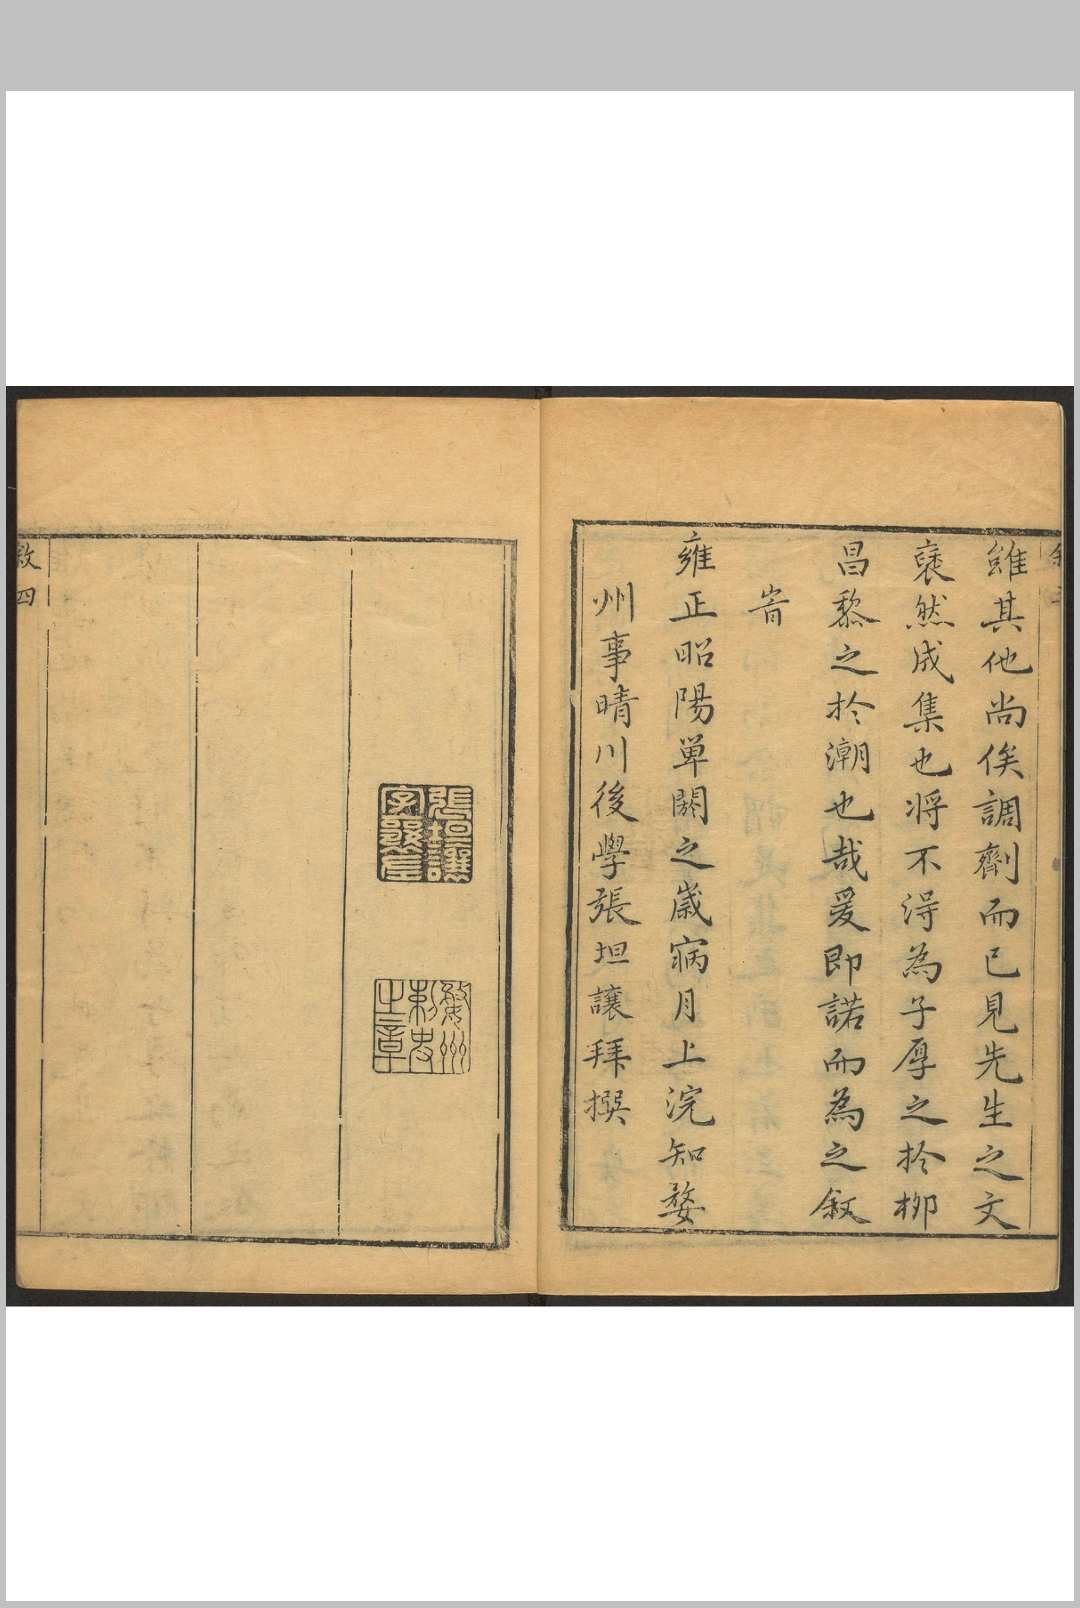 雖其他尚俟調劑而已見先生之文
褎然成集也將不得為子厚之於柳
昌黎之於潮也哉爰即諾而為之敘
旹
雍正昭陽單閼之歲寎月上浣知婺
州事晴川後學張坦讓拜撰
張坦讓
婺州
刺史
之章
敘四